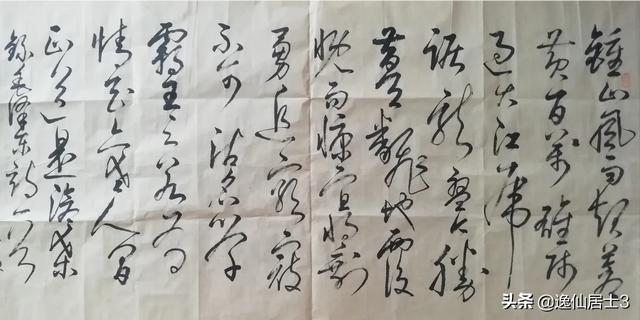 鍾山風雨起蒼
黄百萬雄师
过大江虎
踞龙盘今胜
昔天翻地覆
慨而慷宜将剩
勇追穷寇
不可沽名学
霸王天若有
情天亦老人间
正道是滄桑
録毛泽东詩一首
头条 @逸仙居士3